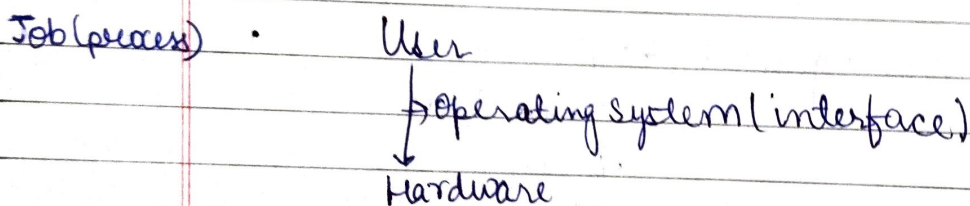 Job (process) • User
operating system (interface)
Hardware